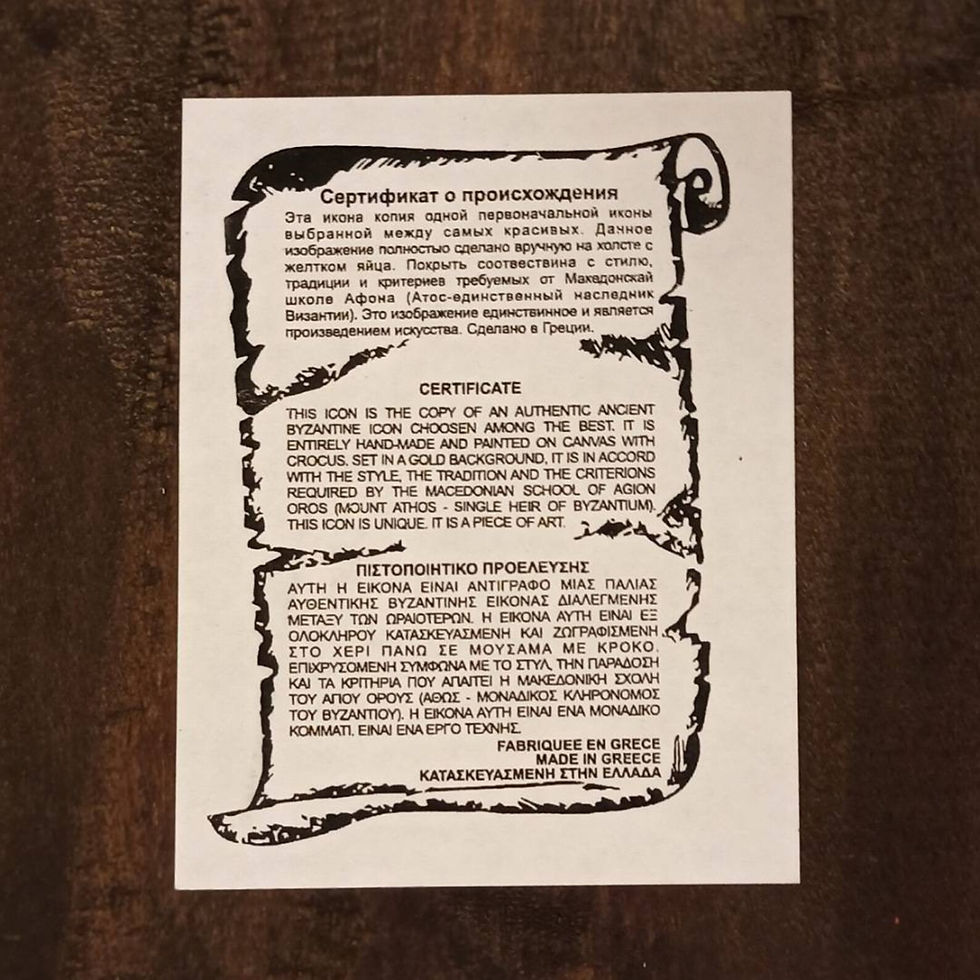 Сертификат о происхождения
Эта икона копия одной первоначальной иконы
выбранной между самых красивых. Данное
изображение полностью сделано вручную на холсте с
желтком яйца. Покрыть соотвествина с стилю,
традиции и критериев требуемых от Македонскай
школе Афона (Атос-единственный наследник
Византии). Это изображение единствинное и является
произведением искусства. Сделано в Греции.
CERTIFICATE
THIS ICON IS THE COPY OF AN AUTHENTIC ANCIENT
BYZANTINE ICON CHOOSEN AMONG THE BEST. IT IS
ENTIRELY HAND-MADE AND PAINTED ON CANVAS WITH
CROCUS. SET IN A GOLD BACKGROUND, IT IS IN ACCORD
WITH THE STYLE, THE TRADITION AND THE CRITERIONS
REQUIRED BY THE MACEDONIAN SCHOOL OF AGION
OROS (MOUNT ATHOS - SINGLE HEIR OF BYZANTIUM).
THIS ICON IS UNIQUE. IT IS A PIECE OF ART.
ΠΙΣΤΟΠΟΙΗΤΙΚΟ ΠΡΟΕΛΕΥΣΗΣ
ΑΥΤΗ Η ΕΙΚΟΝΑ ΕΙΝΑΙ ΑΝΤΙΓΡΑΦΟ ΜΙΑΣ ΠΑΛΙΑΣ
ΑΥΘΕΝΤΙΚΗΣ ΒΥΖΑΝΤΙΝΗΣ ΕΙΚΟΝΑΣ ΔΙΑΛΕΓΜΕΝΗΣ
ΜΕΤΑΞΥ ΤΩΝ ΩΡΑΙΟΤΕΡΩΝ. Η ΕΙΚΟΝΑ ΑΥΤΗ ΕΙΝΑΙ ΕΞ
ΟΛΟΚΛΗΡΟΥ ΚΑΤΑΣΚΕΥΑΣΜΕΝΗ ΚΑΙ ΖΩΓΡΑΦΙΣΜΕΝΗ
ΣΤΟ ΧΕΡΙ ΠΑΝΩ ΣΕ ΜΟΥΣΑΜΑ ΜΕ ΚΡΟΚΟ.
ΕΠΙΧΡΥΣΟΜΕΝΗ ΣΥΜΦΩΝΑ ΜΕ ΤΟ ΣΤΥΛ, ΤΗΝ ΠΑΡΑΔΟΣΗ
ΚΑΙ ΤΑ ΚΡΙΤΗΡΙΑ ΠΟΥ ΑΠΑΙΤΕΙ Η ΜΑΚΕΔΟΝΙΚΗ ΣΧΟΛΗ
ΤΟΥ ΑΓΙΟΥ ΟΡΟΥΣ (ΑΘΩΣ - ΜΟΝΑΔΙΚΟΣ ΚΛΗΡΟΝΟΜΟΣ
ΤΟΥ ΒΥΖΑΝΤΙΟΥ). Η ΕΙΚΟΝΑ ΑΥΤΗ ΕΙΝΑΙ ΕΝΑ ΜΟΝΑΔΙΚΟ
ΚΟΜΜΑΤΙ. ΕΙΝΑΙ ΕΝΑ ΕΡΓΟ ΤΕΧΝΗΣ.
FABRIQUEE EN GRECE
MADE IN GREECE
ΚΑΤΑΣΚΕΥΑΣΜΕΝΗ ΣΤΗΝ ΕΛΛΑΔΑ